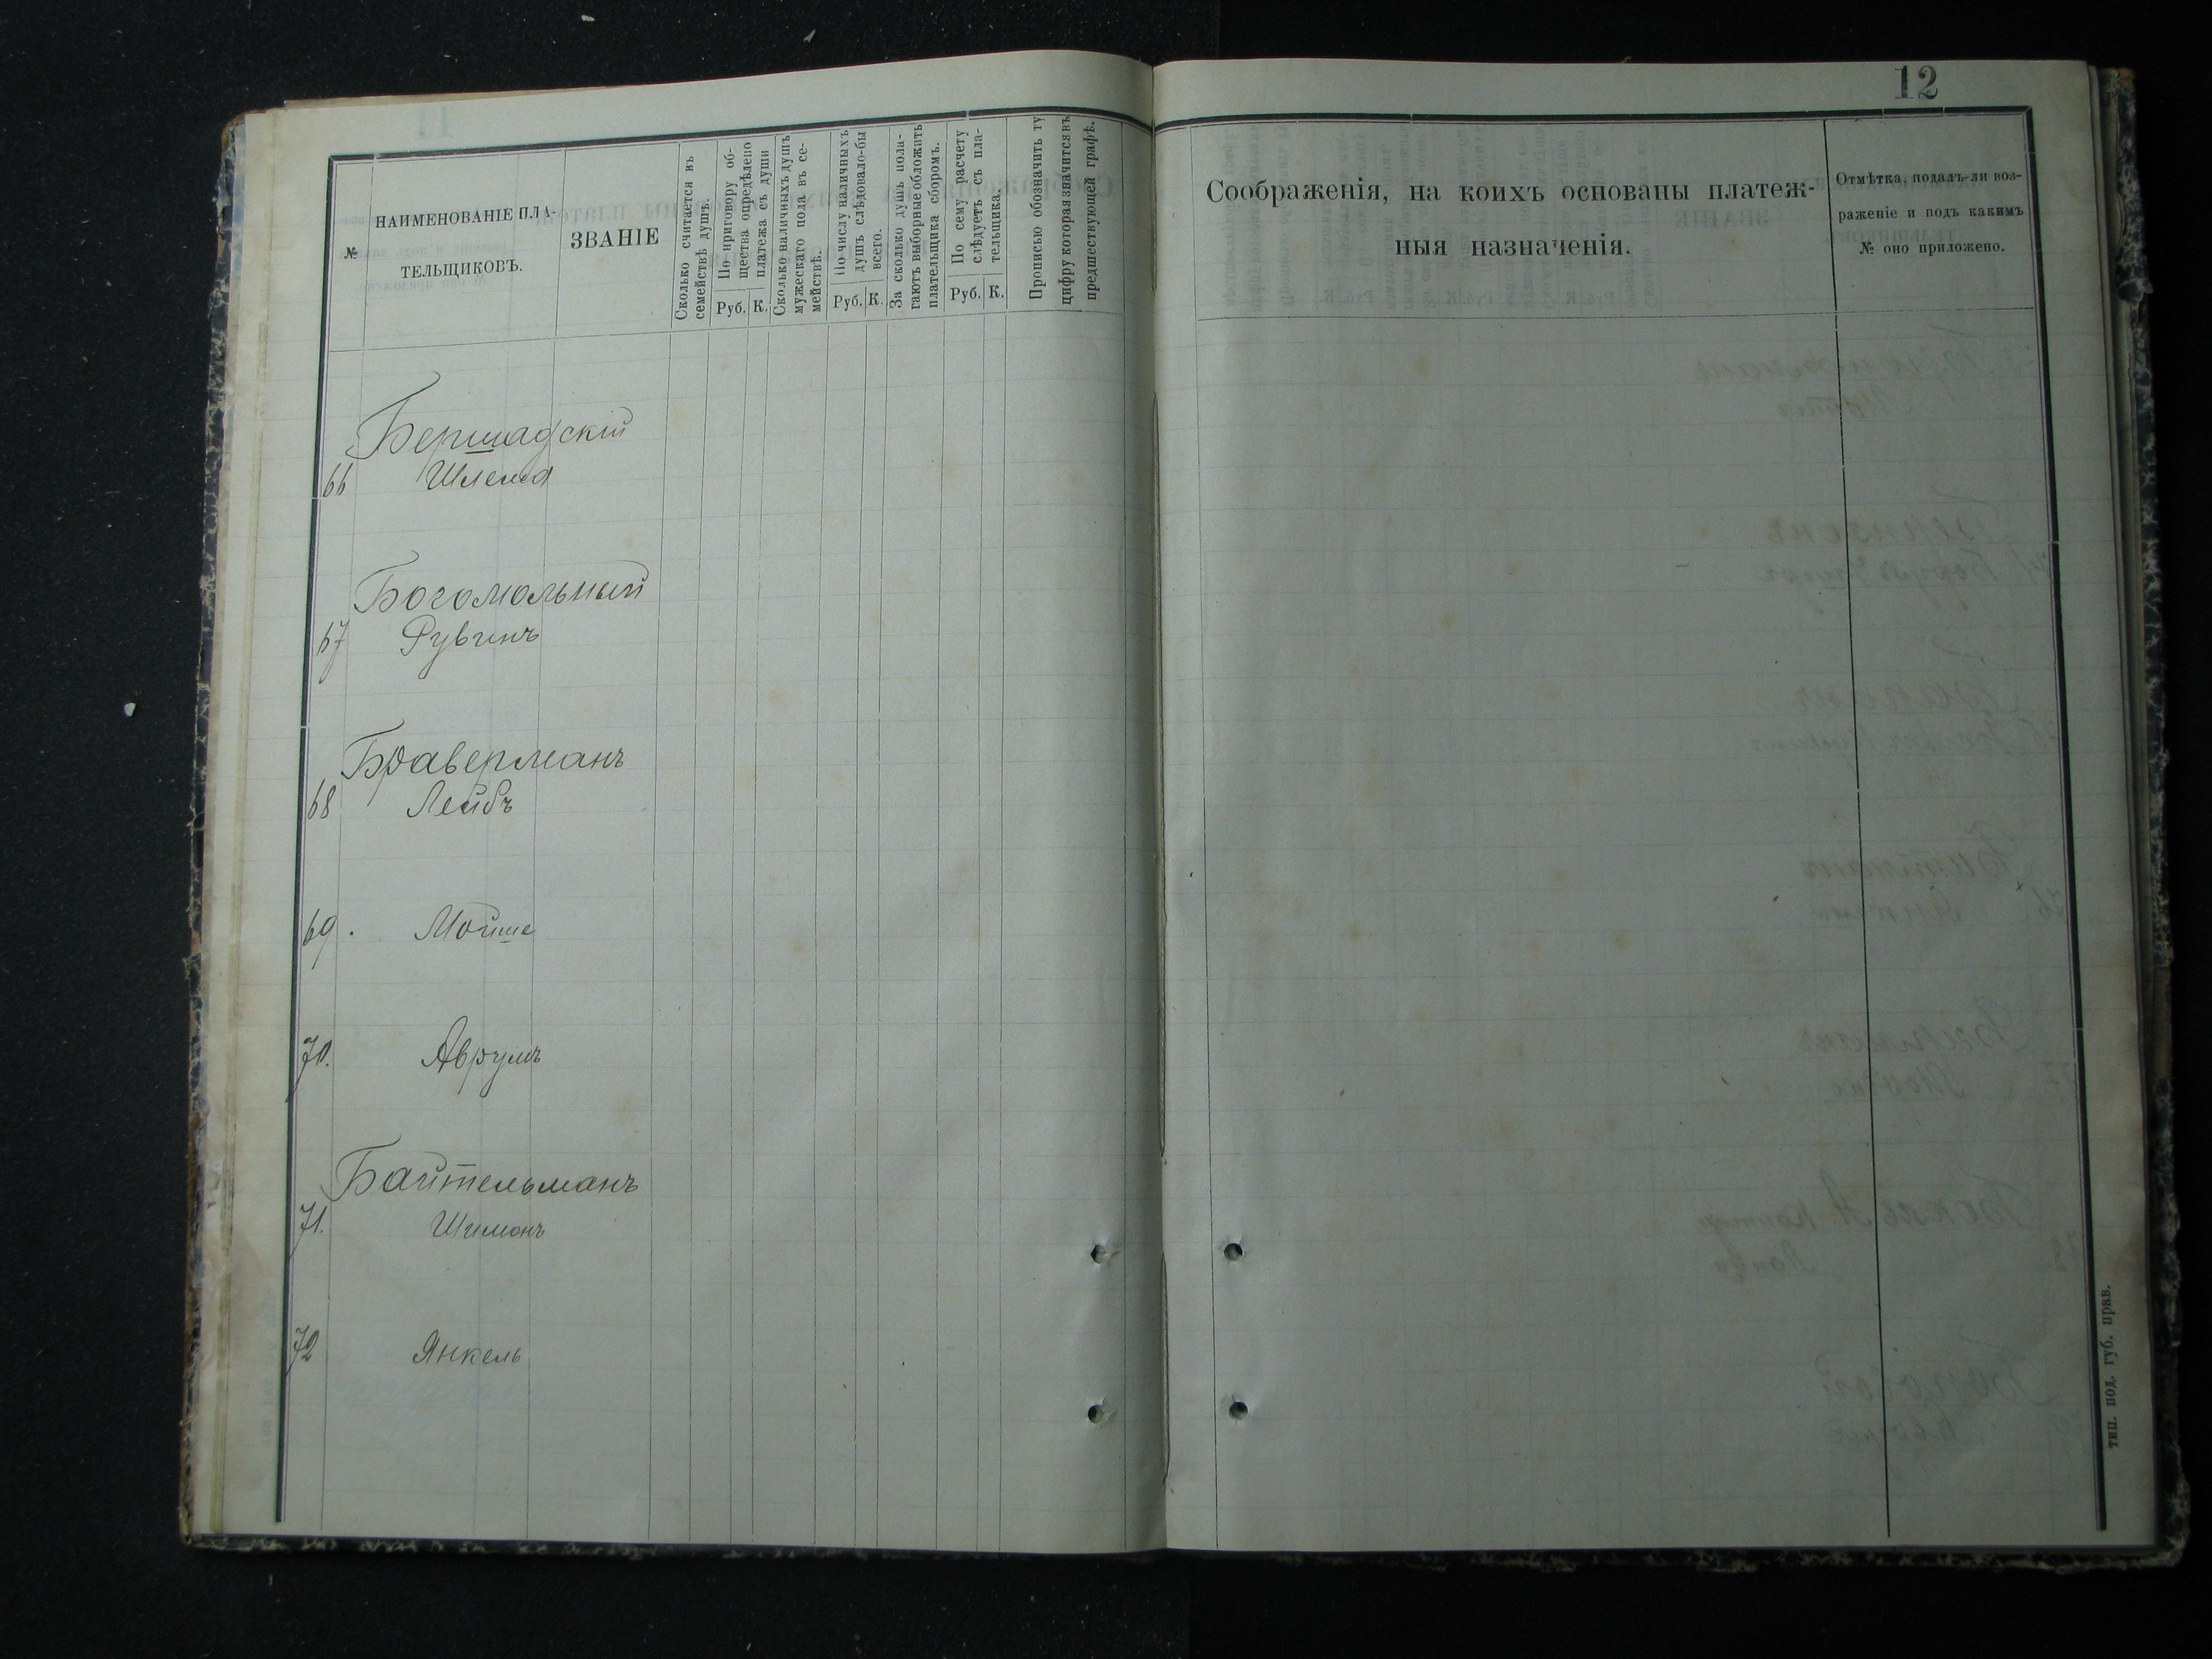 12
№
НАИМЕНОВАНІЕ ПЛА-
ТЕЛЬЩИКОВЪ.
ЗВАНІЕ
Сколько считается въ
семействѣ душъ.
По приговору об-
щества опредѣлено
платежа съ души
Руб. К.
Сколько наличныхъ душъ
мужескаго пола въ се-
мействѣ.
По числу наличныхъ
душъ слѣдовало-бы
всего.
Руб. К.
За сколько душъ пола-
гаютъ выборные обложить
плательщика сборомъ.
По сему расчету
слѣдуетъ съ пла-
тельщика.
Руб. К.
Прописью обозначить ту
цифру которая значится въ
предшествующей графѣ.
Соображенія, на коихъ основаны платеж-
ныя назначенія.
Отмѣтка, подалъ-ли воз-
раженіе и подъ какимъ
№ оно приложено.
Бершадскій
66 Шлема
Богомольный
67 Рувинъ
Браверманъ
68 Лейбъ
69. Мойше
70. Аврумъ
Байтельманъ
71. Шимонъ
72 Янкель
тип. под. губ. прав.